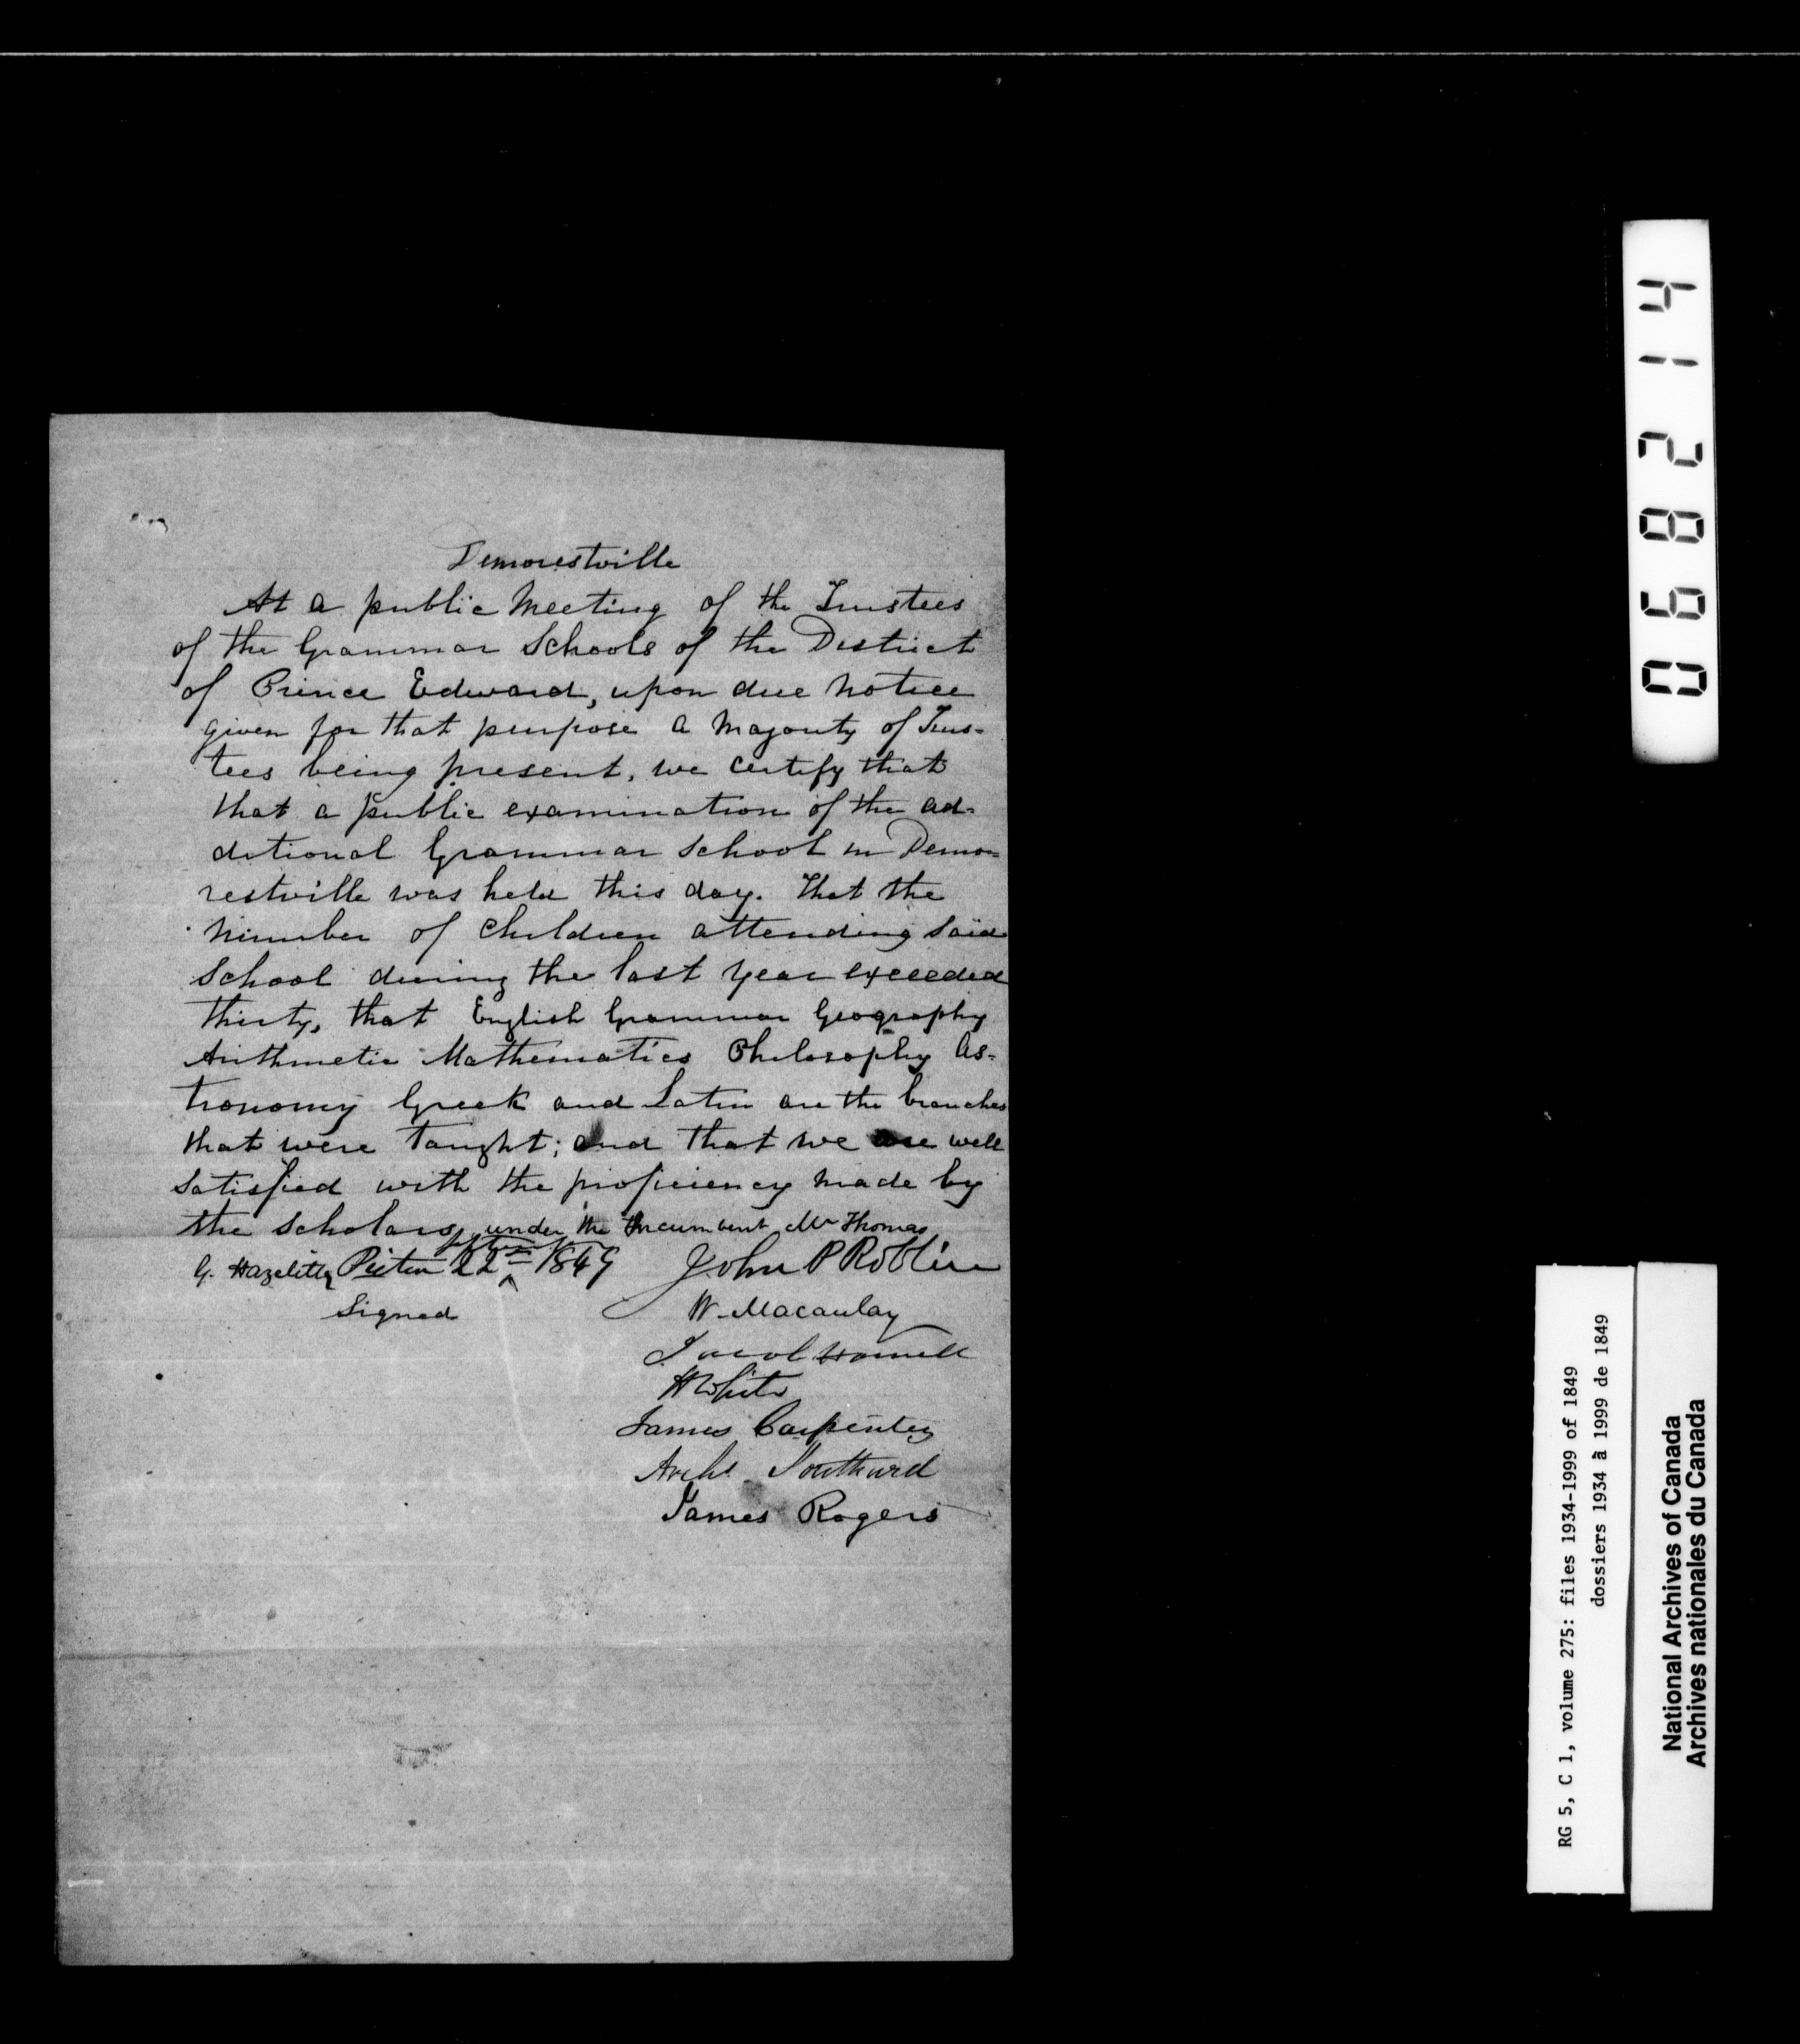 Demorestville
At a public Meeting of the Trustees
of the Grammar Schools of the District
of Prince Edward, upon due notice
given for that purpose a Majority of Trus-
tees being present, we certify that
that a public examination of the ad-
ditional Grammar School in Demo-
restville was held this day. That the
number of children attending said
School during the last year exceeded
thirty, that English Grammar Geography
Arithmetic Mathematics Philosophy As-
tronomy Greek and Latin are the branches
that were taught; and that we are well
satisfied with the proficiency made by
the scholars, under the Incumbent Mr Thomas
G. Hazelitt Picton 22 1849 John P Roblin
Signed W. Macaulay
Jacob Howell
James Carpenter
Archd Southard
James Rogers
068214
RG 5, C 1, volume 275: files 1934-1999 of 1849
dossiers 1934 à 1999 de 1849
National Archives of Canada
Archives nationales du Canada